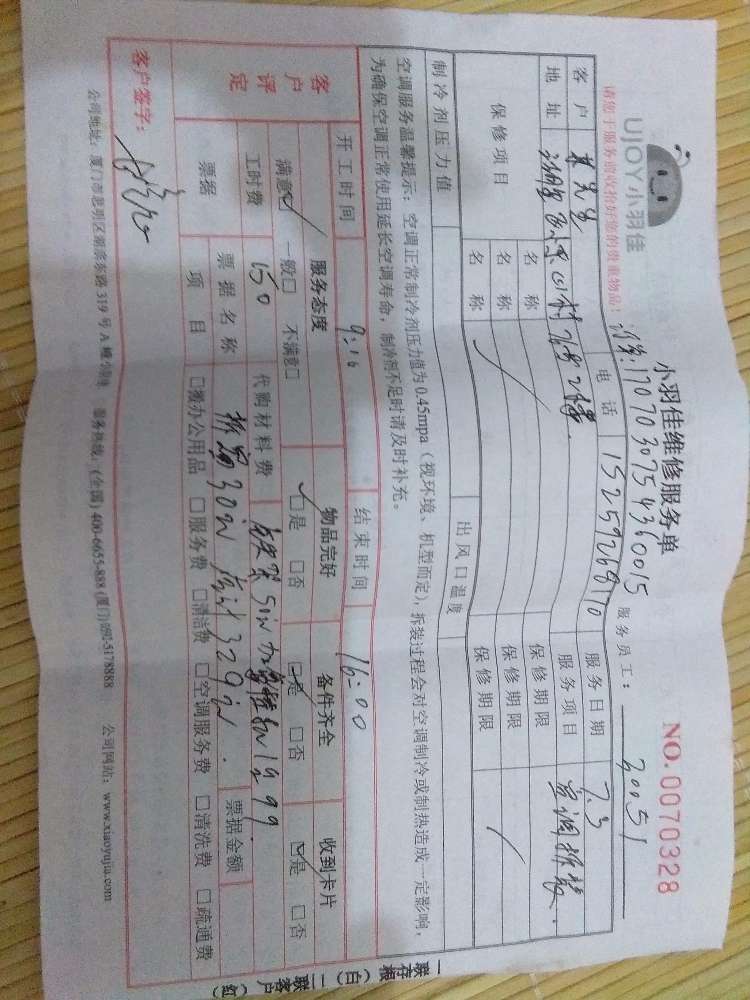 UJOY 小羽佳
小羽佳维修服务单
NO.0070328
请您于服务前收拾好您的贵重物品!
订单:1707030754360015
服务员工: 30051
客户 电话 15259268110 服务日期 7.3
地址 服务项目 空调拆装.
保修项目 名称 保修期限
名称 保修期限
名称 保修期限
制冷剂压力值 出风口温度
空调服务温馨提示:空调正常制冷剂压力值为0.45mpa(视环境、机型而定),拆装过程会对空调制冷或制热造成一定影响,
为确保空调正常使用延长空调寿命,制冷剂不足时请及时补充。
开工时间 9:10 结束时间 16:00
客户评定 服务态度 物品完好 备件齐全 收到卡片
满意☑ 一般□ 不满意□ ☑是 □否 ☑是 □否 ☑是 □否
工时费 150 代购材料费
票据 票据名称 票据金额
项目 □搬办公用品 □服务费 □清洁费 □空调服务费 □清洗费 □疏通费
客户签字:
公司地址:厦门市思明区湖滨东路319号A幢 服务热线:(全国)400-6655-888 (厦门)0592-5178888 公司网站:www.xiaoyujia.com
一联存根(白)二联客户(红)